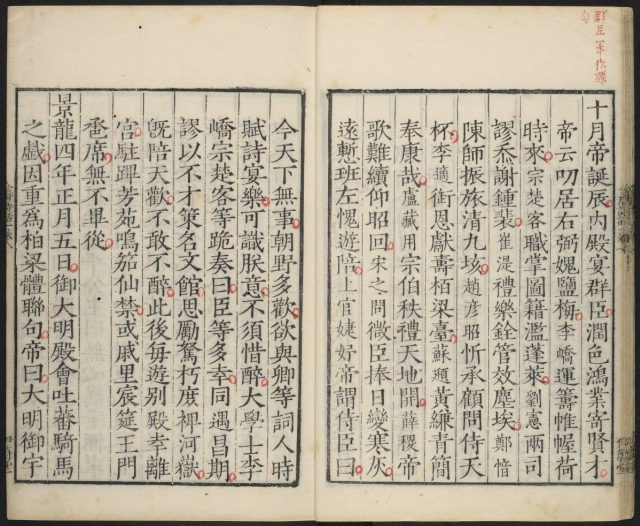 群臣一本作聯
句
十月帝誕辰内殿宴群臣潤色鴻業寄賢才
帝云叨居右弼媿鹽梅李嶠運籌帷幄荷
時來宗楚客職掌圖籍濫蓬萊劉憲兩司
謬忝謝鍾裴崔湜禮樂銓管效塵埃鄭愔
陳師振旅清九垓趙彦昭忻承顧問侍天
杯李適銜恩獻壽栢梁臺蘇頲黄縑青簡
奉康哉盧藏用宗伯秩禮天地開薛稷帝
歌難續仰昭回宋之問微臣捧日變寒灰
遠慙班左愧遊陪上官婕妤帝謂侍臣曰
今天下無事朝野多歡欲與卿等詞人時
賦詩宴樂可識朕意不須惜醉大學士李
嶠宗楚客等跪奏曰臣等多幸同遇昌期
謬以不才策名文館思勵駑朽庶裨河嶽
旣陪天歡不敢不醉此後每遊别殿幸離
宫駐蹕芳苑鳴笳仙禁或戚里宸筵王門
巹席無不畢從
景龍四年正月五日御大明殿會吐蕃騎馬
之戲因重爲柏梁體聯句帝曰大明御宇